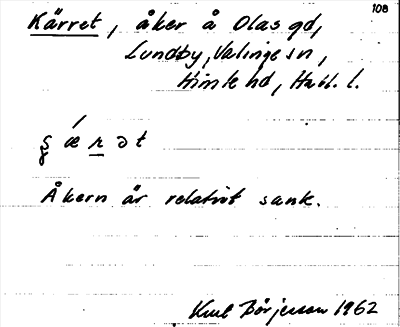 108
Kärret, åker å Olas gd,
Lundby, Valinge sn,
Himle hd, Hall. l.
ʂ ǽ r ə t
Åkern är relativt sank.
Kurt Börjesson 1962